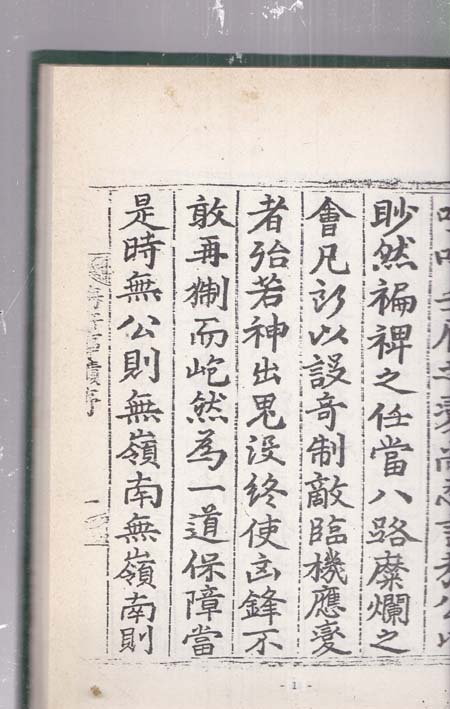 眇然褊裨之任當八路糜爛之
會凡所以設奇制敵臨機應變
者殆若神出鬼没終使凶鋒不
敢再猘而屹然為一道保障當
是時無公則無嶺南無嶺南則
- 1 -